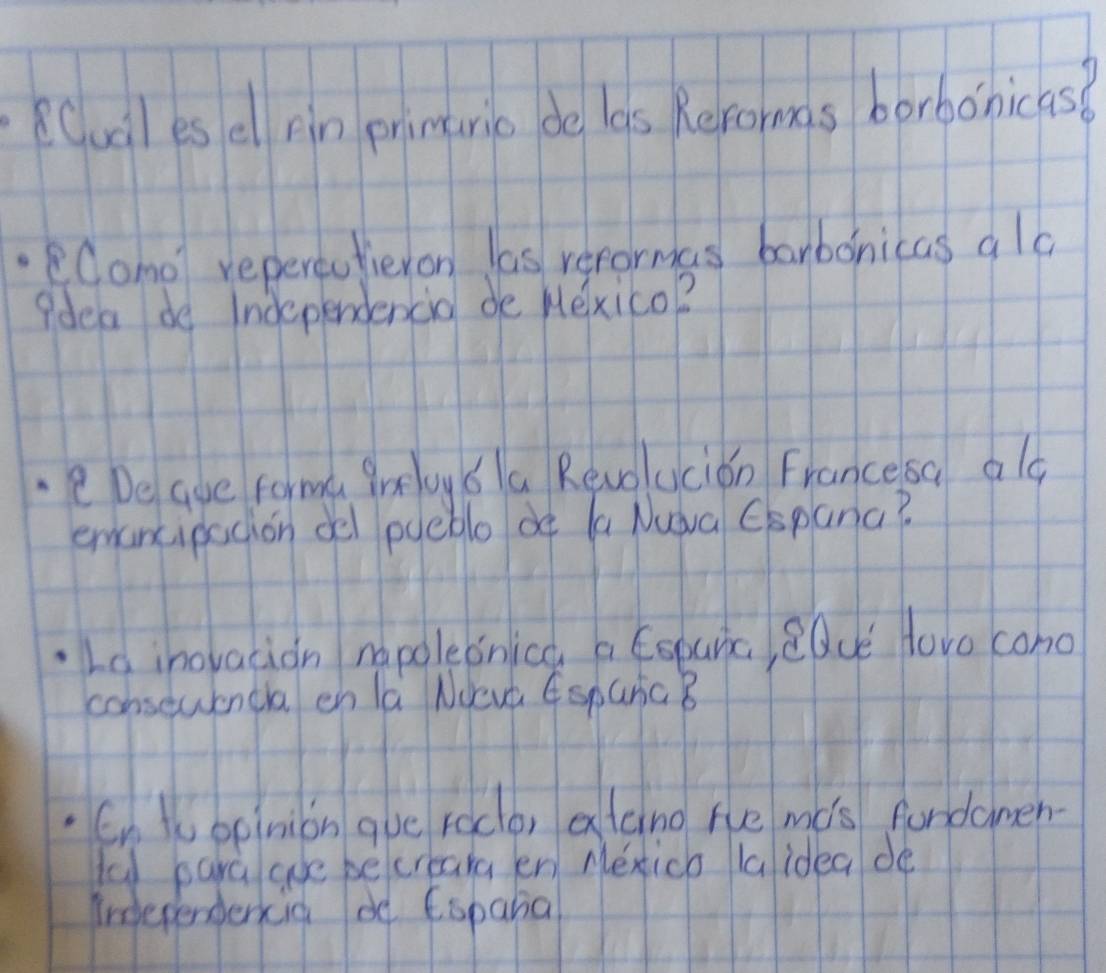 • ¿Cuál es el fin primario de las Reformas borbónicas?
• ¿Como repercutieron las reformas borbónicas a la
idea de Independencia de México?
• ¿De que forma influyó la Revolución Francesa a la
emancipación del pueblo de la Nueva España?
• La inovación napoleónica a España, ¿Qué tuvo como
consecuencia en la Nueva España?
• En tu opinión que factor externo fue más fundamen-
tal para que se creara en México la idea de
Independencia de España